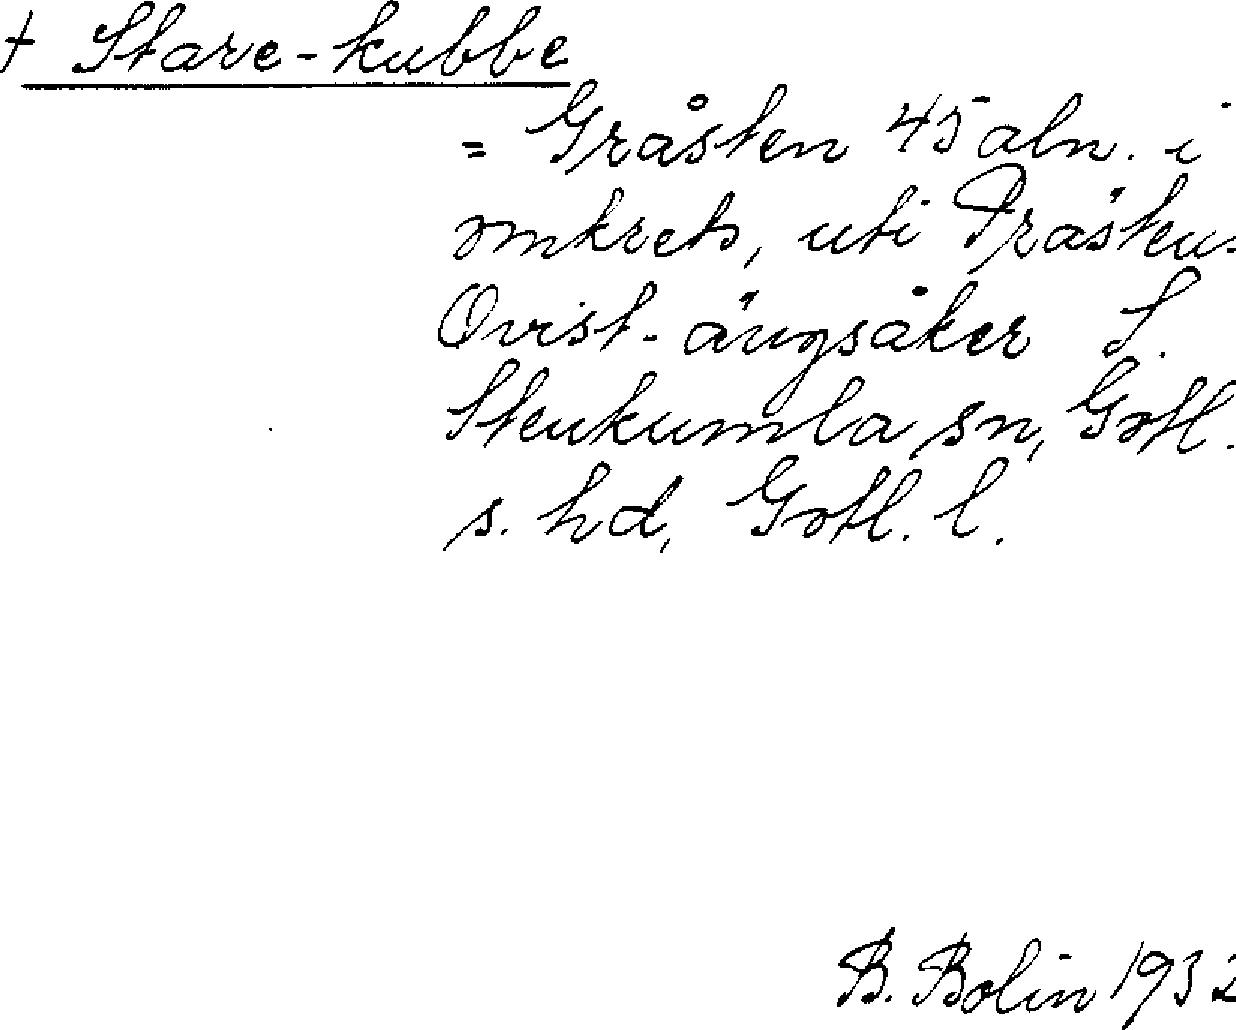 † Stare-kubbe
= Gråsten 45 aln. i
omkrets, uti Träsku-
Qvist-ängsåker S.
Stenkumla sn, Gotl.
s. hd, Gotl. l.
B. Bolin 1932